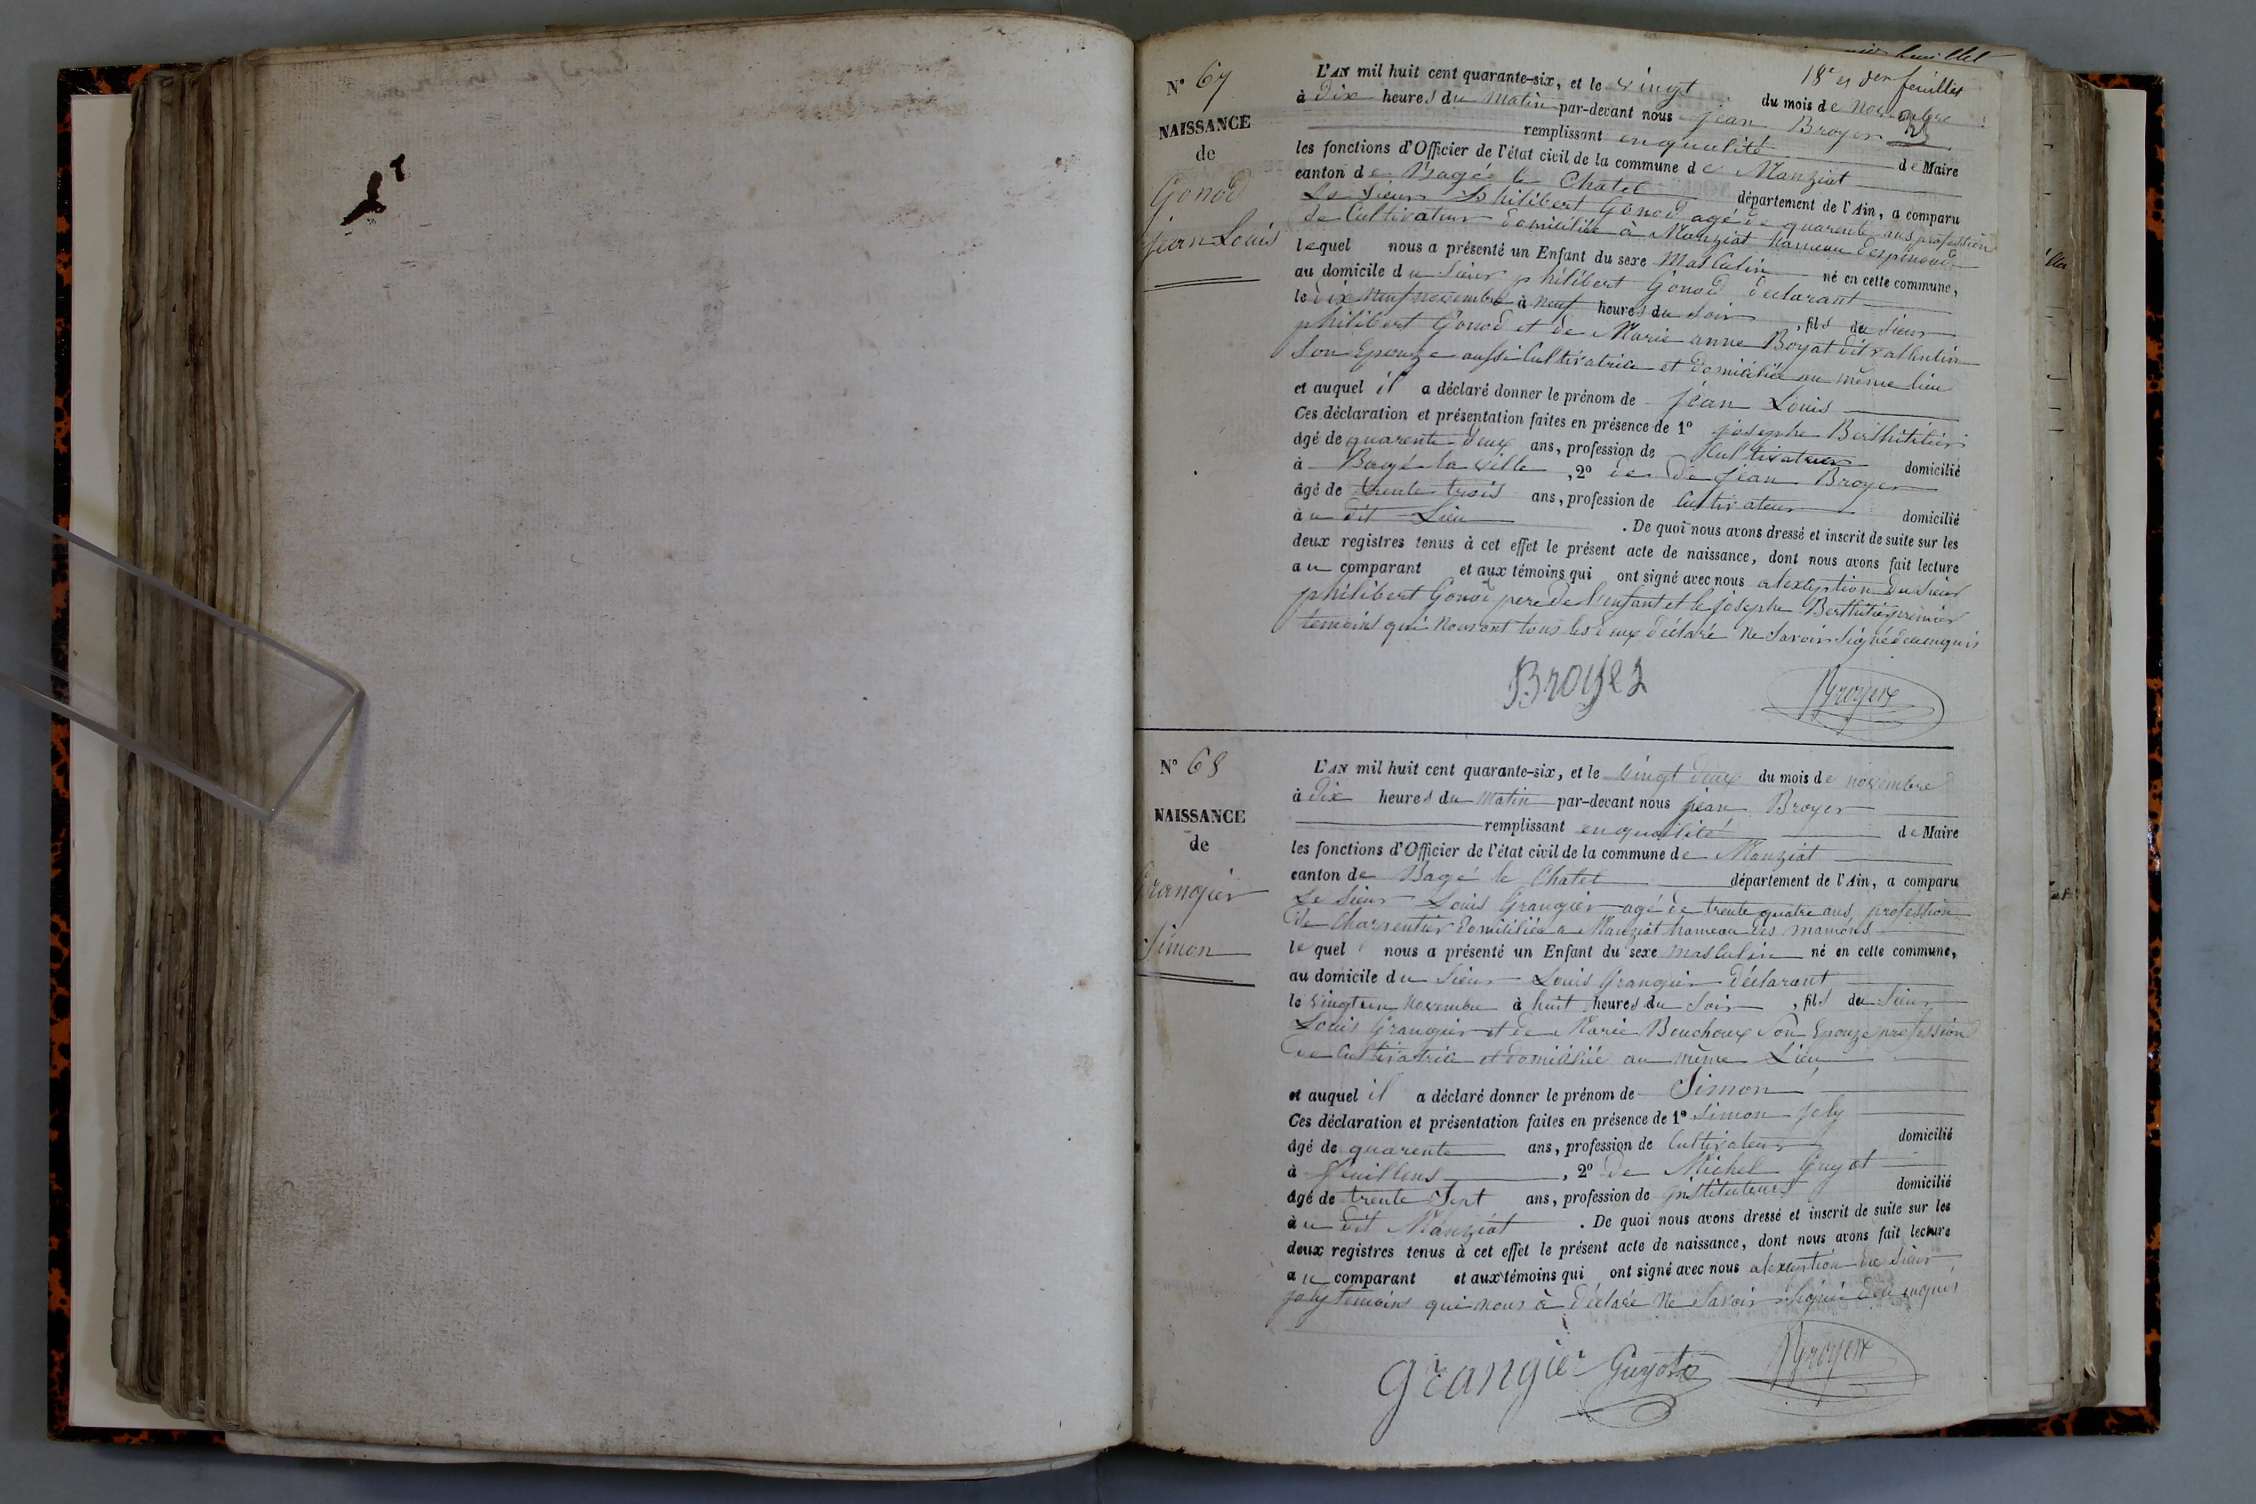 18e et der feuillet
N° 67
NAISSANCE
de
Gonod
jean Louis
L'AN mil huit cent quarante-six, et le vingt du mois de novembre
à dix heures du matin par-devant nous jean Broyer
remplissant en qualité de Maire
les fonctions d'Officier de l'état civil de la commune de Manziat
canton de Bagé le Chatel département de l'Ain, a comparu
Le Sieur philibert Gonod agé de quarente ans profession
de Cultivateur domicilié à Manziat hameau
lequel nous a présenté un Enfant du sexe Masculin né en cette commune,
au domicile du Sieur philibert Gonod déclarant
le dix neuf novembre à neuf heures du soir, fils du sieur
philibert Gonod et de Marie anne Boyat dit
son Epouze aussi Cultivatrice et domiciliée au même lieu
et auquel il a déclaré donner le prénom de jean Louis
Ces déclaration et présentation faites en présence de 1° josephe
âgé de quarente deux ans, profession de Cultivateur domicilié
à Bagé la ville, 2° de jean Broyer
âgé de trente trois ans, profession de Cultivateur domicilié
à u dit Lieu. De quoi nous avons dressé et inscrit de suite sur les
deux registres tenus à cet effet le présent acte de naissance, dont nous avons fait lecture
au comparant et aux témoins qui ont signé avec nous a lexception du sieur
philibert Gonod pere de l'enfant et le josephe premier
temoins qui nous ont tous les deux déclaré ne savoir signé de ce enquis
Broyer Broyer
N° 68
NAISSANCE
de
Grangier
Simon
L'AN mil huit cent quarante-six, et le vingt deux du mois de novembre
à dix heures du matin par-devant nous jean Broyer
remplissant en qualité de Maire
les fonctions d'Officier de l'état civil de la commune de Manziat
canton de Bagé le Chatel département de l'Ain, a comparu
Le Sieur Louis Grangier agé de trente quatre ans profession
de Charpentier domiciliée a Manziat hameau des mamons
lequel nous a présenté un Enfant du sexe masculin né en cette commune,
au domicile du Sieur Louis Grangier déclarant
le vingt un novembre à huit heures du soir, fils du sieur
Louis Grangier et de Marie Bouchoux son Epouze profession
de Cultivatrice et domiciliée au même Lieu
et auquel il a déclaré donner le prénom de Simon
Ces déclaration et présentation faites en présence de 1° Simon joly
âgé de quarente ans, profession de Cultivateur domicilié
à feuillens, 2° de Michel Guyot
âgé de trente sept ans, profession de instituteur domicilié
à u dit Manziat. De quoi nous avons dressé et inscrit de suite sur les
deux registres tenus à cet effet le présent acte de naissance, dont nous avons fait lecture
au comparant et aux témoins qui ont signé avec nous a lexception du sieur
joly temoins qui nous à déclaré ne savoir signé de ce enquis
Grangier Guyot Broyer